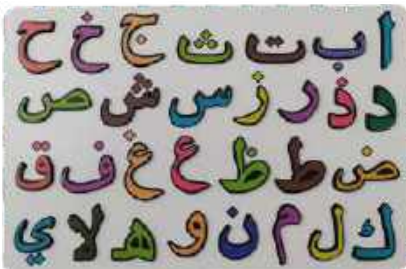 ا ب ت ث ج خ ح
د ذ ر ز س ش ص
ض ط ظ ع غ ف ق
ك ل م ن و هـ لا ي